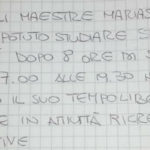 LI MAESTRE MARIAS
POTUTO STUDIARE S
DOPO 8 ORE DI S
7.00 ALLE 19.30 N
IL SUO TEMPO LIBE
E IN ATTIVITÀ RICRE
IVE